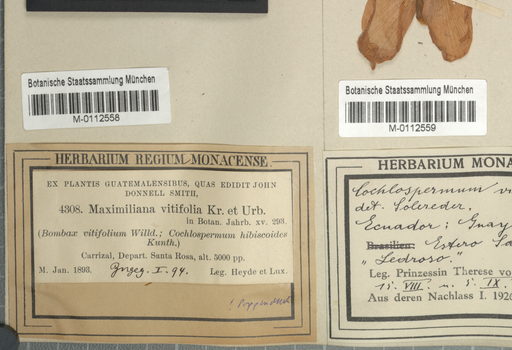 Botanische Staatssammlung München
M-0112558
HERBARIUM REGIUM MONACENSE.
EX PLANTIS GUATEMALENSIBUS, QUAS EDIDIT JOHN
DONNELL SMITH,
4308. Maximiliana vitifolia Kr. et Urb.
in Botan. Jahrb. xv. 293.
(Bombax vitifolium Willd.; Cochlospermum hibiscoides
Kunth.)
Carrizal, Depart. Santa Rosa, alt. 5000 pp.
M. Jan. 1893. I. 94. Leg. Heyde et Lux.
Botanische Staatssammlung München
M-0112559
HERBARIUM MONA
Cochlospermum vi
det. Solereder.
Ecuador: Guay
Brasilien: Estero Sa
"Pedroso."
Leg. Prinzessin Therese vo
15. VIII. u. 5. IX.
Aus deren Nachlass I. 1926